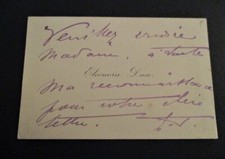 Veuillez croire
Madame, à toute
Eleonora Duse
Ma reconnaissance
pour votre chère
lettre.